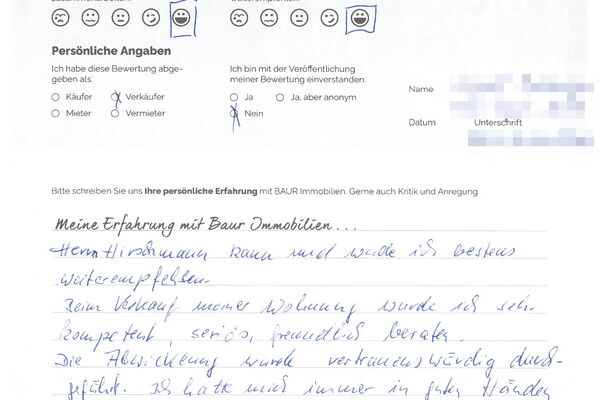 Persönliche Angaben
Ich habe diese Bewertung abge-
geben als:
Käufer
Verkäufer
Mieter
Vermieter
Ich bin mit der Veröffentlichung
meiner Bewertung einverstanden.
Ja
Ja, aber anonym
Nein
Name
Datum
Unterschrift
Bitte schreiben Sie uns Ihre persönliche Erfahrung mit BAUR Immobilien. Gerne auch Kritik und Anregung.
Meine Erfahrung mit Baur Immobilien...
Herrn Hirschmann kann und würde ich bestens
weiterempfehlen.
Beim Verkauf meiner Wohnung wurde ich sehr
kompetent, seriös, freundlich beraten.
Die Abwicklung wurde vertrauenswürdig durch-
geführt. Ich hatte mich immer in guten Händen